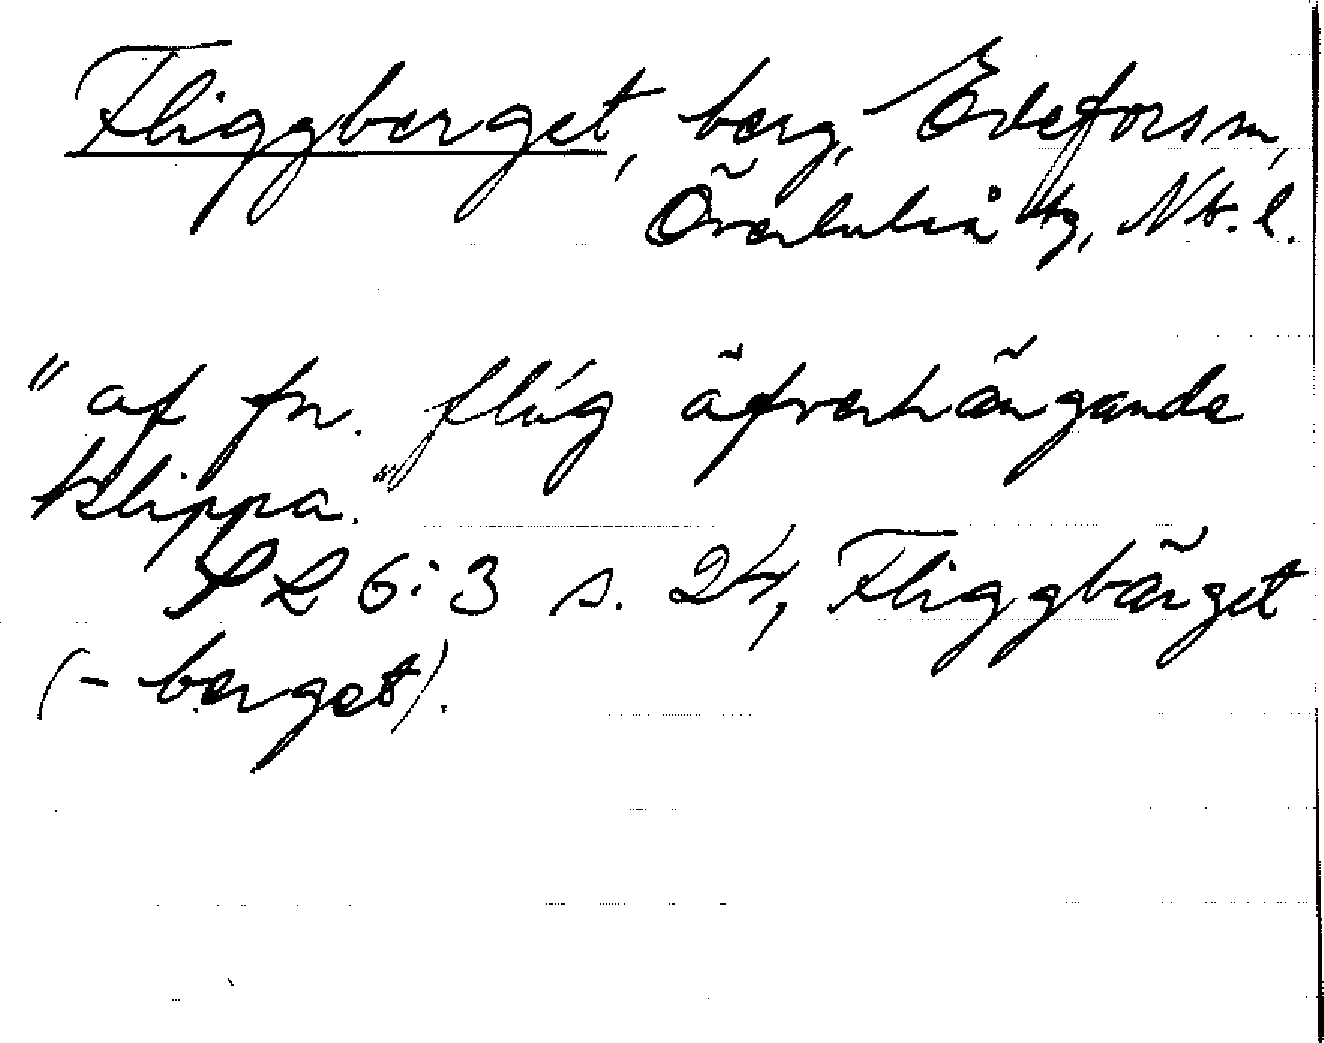 Fliggberget, berg, Edefors sn,
Överluleå tg, Nb. l.
"af fn. flúg öfverhängande
klippa."
SL 6:3 s. 24, Fliggbärget
(-berget).